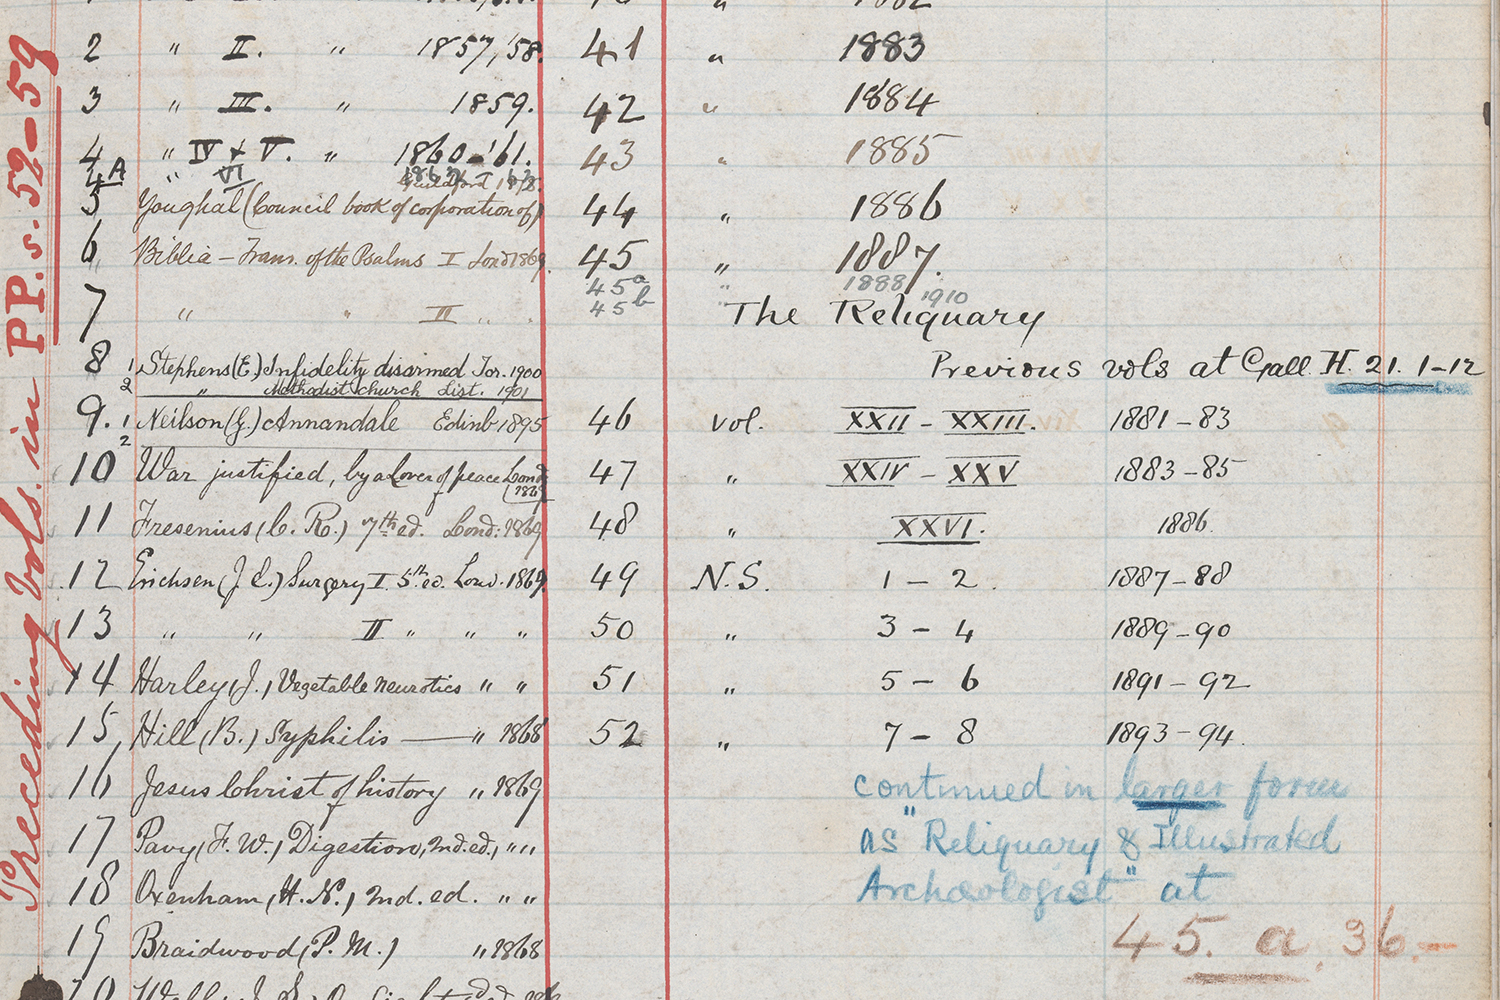 2 " II. " 1857, '58. 41 " 1883
3 " III. " 1859. 42 " 1884
4 " IV + V. " 1860-'61. 43 " 1885
4A " VI
5 Youghal (Council book of corporation of) Guildford 1878. 44 " 1886
6 Biblia - Trans. of the Psalms I Lond 1869. 45 " 1887.
45a " 1888
7 " " II " 45b " 1910
The Reliquary
8 1 Stephens (E.) Infidelity disarmed Tor. 1900
Previous vols at Gall. H. 21. 1-12
2 " Methodist church List. 1901
9. 1 Neilson (G.) Annandale Edinb 1895 46 vol. XXII - XXIII. 1881-83
2
10 War justified, by a Lover of peace Lond. 47 " XXIV - XXV 1883-85
11 Fresenius (C. R.) 7th ed. Lond: 1869 48 " XXVI. 1886.
12 Erichsen (J. E.) Surgery I. 5th ed. Lond. 1869. 49 N.S. 1 - 2. 1887-88
13 " " II " " " 50 " 3 - 4 1889-90
14 Harley (J.) Vegetable neurotics " " 51 " 5 - 6 1891-92
15 Hill (B.) Syphilis — " 1868 52 " 7 - 8 1893-94.
16 Jesus Christ of history " 1869
continued in larger form
17 Pavy (F. W.) Digestion, 2nd. ed., " "
as "Reliquary & Illustrated
18 Oxenham (H. N.) 2nd. ed. " "
Archæologist" at
19 Braidwood (P. M.) " 1868
45. a. 36.-
Preceding Vols. in PP. s. 52-59